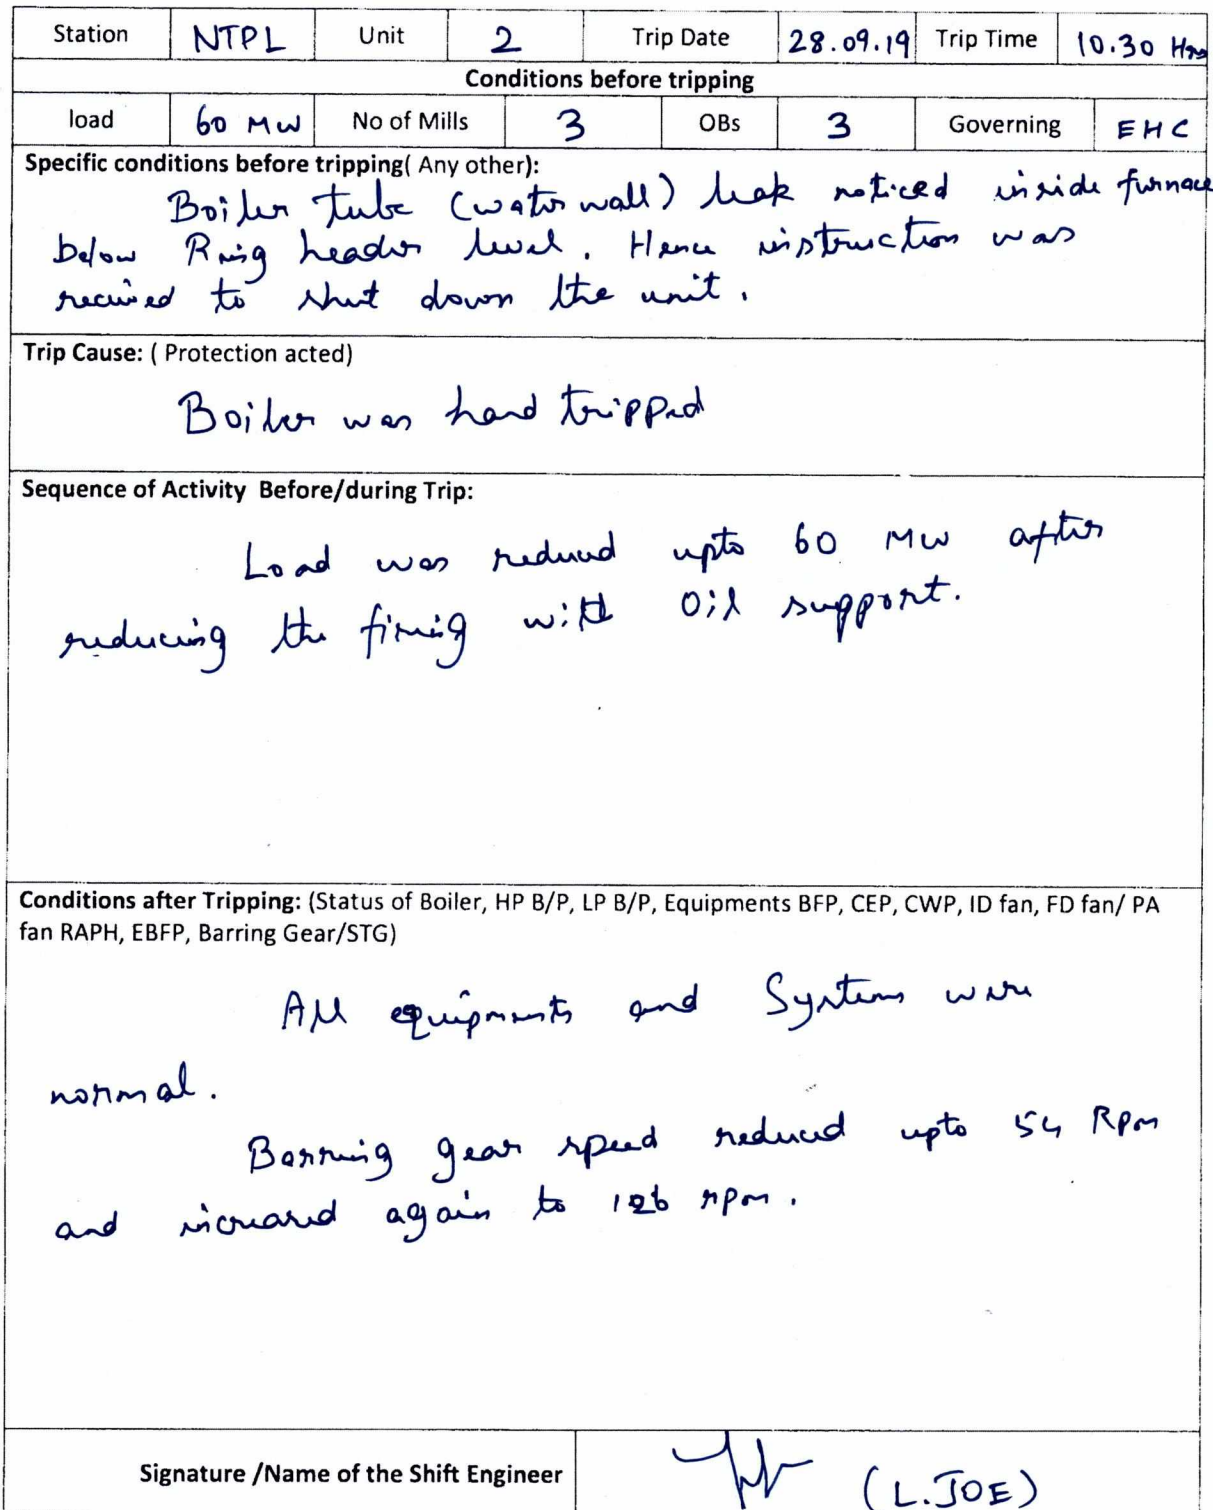 Station NTPL Unit 2 Trip Date 28.09.19 Trip Time 10.30 Hrs
Conditions before tripping
load 60 MW No of Mills 3 OBs 3 Governing EHC
Specific conditions before tripping( Any other):
Boiler tube (water wall) leak noticed inside furnace
below Ring header level. Hence instruction was
received to shut down the unit.
Trip Cause: ( Protection acted)
Boiler was hand tripped
Sequence of Activity Before/during Trip:
Load was reduced upto 60 MW after
reducing the firing with Oil support.
Conditions after Tripping: (Status of Boiler, HP B/P, LP B/P, Equipments BFP, CEP, CWP, ID fan, FD fan/ PA
fan RAPH, EBFP, Barring Gear/STG)
All equipments and Systems were
normal.
Barring gear speed reduced upto 54 Rpm
and increased again to 126 rpm.
Signature /Name of the Shift Engineer (L.JOE)